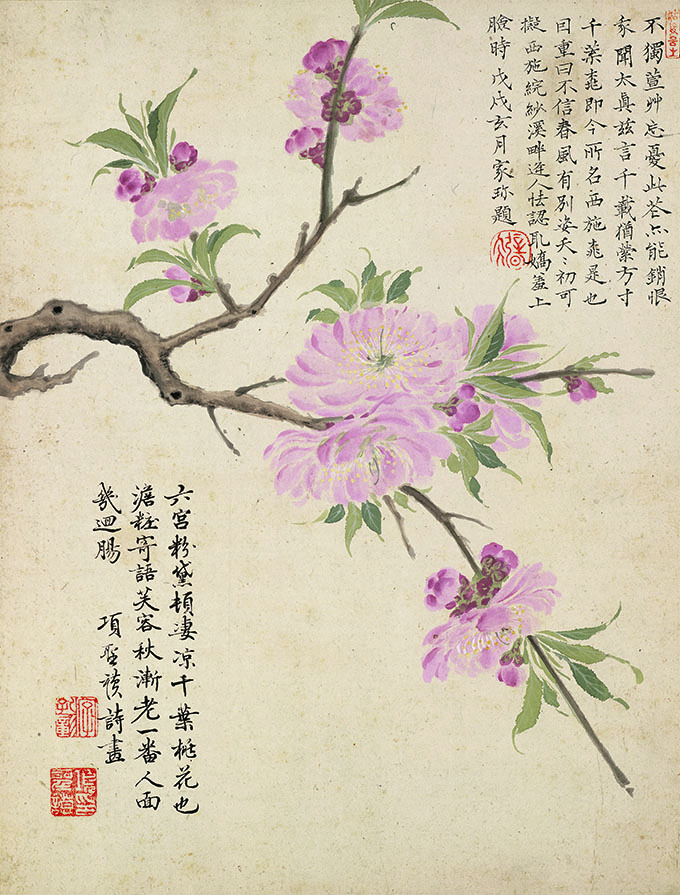 不獨萱艸忘憂此花亦能銷恨
家聞太真茲言千載猶縈方寸
千葉桃即今所名西施桃是也
因重曰不信春風有別姿夭〻初可
擬西施浣紗溪畔逢人怯認取嬌羞上
臉時 戊戌亥月家珎題
六宮粉黛頓凄凉千葉桃花也
澹粧寄語芙容秋漸老一番人面
幾迴腸 項聖謨詩畫